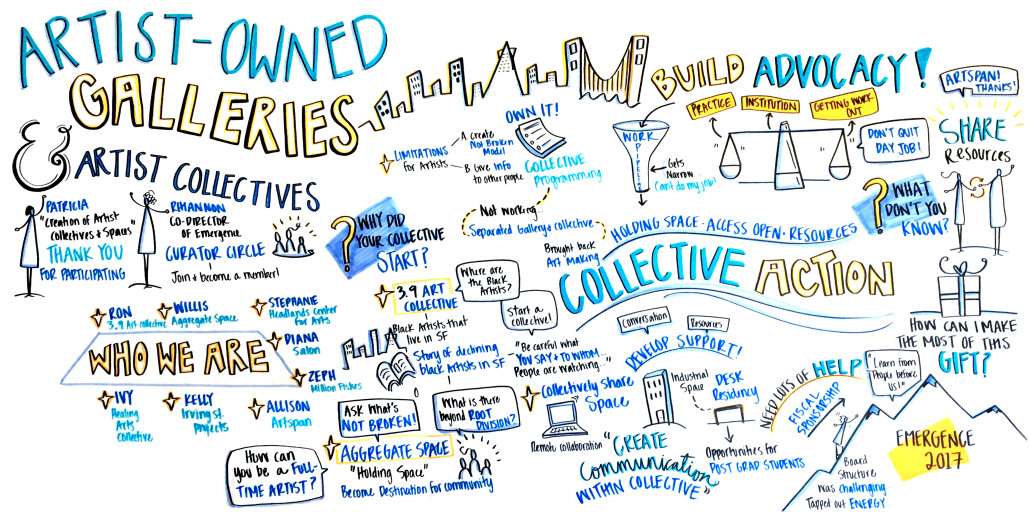 ARTIST-OWNED
GALLERIES
& ARTIST COLLECTIVES
PATRICIA
"Creation of Artist
Collectives + Spaces"
THANK YOU
FOR PARTICIPATING
RHIANNON
CO-DIRECTOR
OF Emergence
CURATOR CIRCLE
Join + become a member!
WHO WE ARE
RON
3.9 Art collective
WILLIS
Aggregate Space
STEPHANIE
Headlands Center
for Arts
DIANA
Salon
ZEPH
Million Fishes
ALLISON
Artspan
KELLY
Irving st.
Projects
IVY
Healing
Arts
Collective
How can
you be a FULL-
TIME ARTIST?
? WHY DID
YOUR COLLECTIVE
START?
LIMITATIONS
for Artists
A. Create
Not Broken
Model
B. Give info
to other people
OWN IT!
COLLECTIVE
Programming
Not working...
Separated Gallery collective
Brought back
Art Making
3.9 ART
COLLECTIVE
Where are
the Black
Artists?
Start a
collective!
Black Artists that
live in SF
Story of declining
black Artists in SF
"Be careful what
YOU SAY + TO WHOM...
People are watching..."
ASK WHAT'S
NOT BROKEN!
What is there
beyond ROOT
DIVISION?
AGGREGATE SPACE
"Holding Space"
Become Destination for community
BUILD ADVOCACY!
WORK
PIPELINE
Gets
Narrow
Can't do my job!
PRACTICE
INSTITUTION
GETTING WORK
OUT
DON'T QUIT
DAY JOB!
ARTSPAN!
THANKS!
SHARE
Resources
? WHAT
DON'T YOU
KNOW?
HOLDING SPACE · ACCESS OPEN · RESOURCES
COLLECTIVE ACTION
Conversation
Resources
DEVELOP SUPPORT!
Collectively Share
Space
Remote collaboration
Industrial
Space
DESK
Residency
Opportunities for
POST GRAD STUDENTS
"CREATE
Communication
WITHIN COLLECTIVE"
NEED LOTS OF HELP
FISCAL
SPONSORSHIP
"Learn from
People before
us!"
HOW CAN I MAKE
THE MOST OF THIS
GIFT?
EMERGENCE
2017
Board
Structure
was challenging
Tapped out ENERGY...